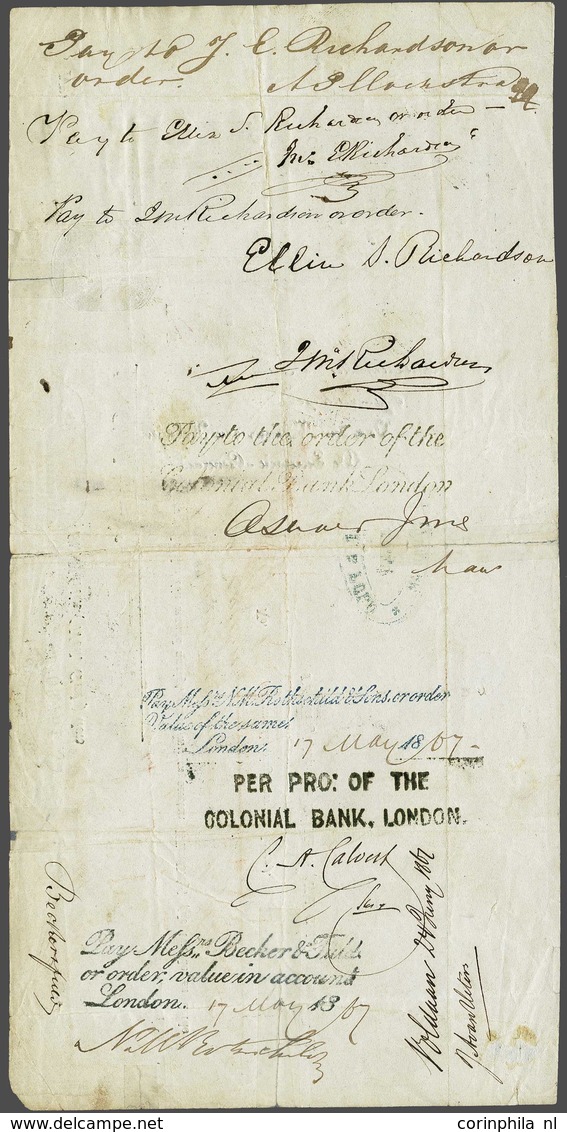 Pay to J. E. Richardson or
order.
Pay to Ellin S. Richardson or order
Pay to Jno Richardson or order.
Ellin S. Richardson
Jno Richardson
Pay to the order of the
Colonial Bank London
Pay Messrs N.M. Rothschild & Sons, or order
Value of the same.
London. 17 May 1867
PER PRO: OF THE
COLONIAL BANK, LONDON.
C. A. Calvert
Pay Messrs Becker & Fuld
or order, value in account
London. 17 May 1867
N M Rothschild
Becker & Fuld
corinphila nl